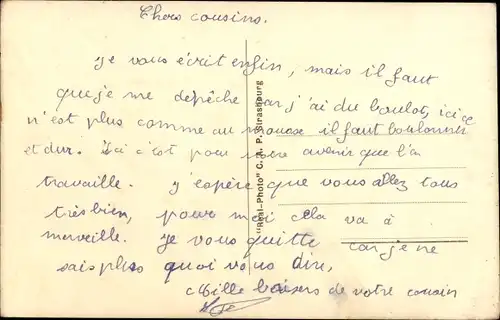 Chers cousins.
je vous écrit enfin, mais il faut
que je me dépêche car j'ai du boulot, ici ce
n'est plus comme au mousse il faut boulonner
et dur. Ici c'est pour notre avenir que l'on
travaille. j'espère que vous allez tous
très bien, pour moi cela va à
merveille. je vous quitte
car je ne
sais plus quoi vous dire,
Mille baisers de votre cousin
"Real-Photo" C. A. P. Strasbourg